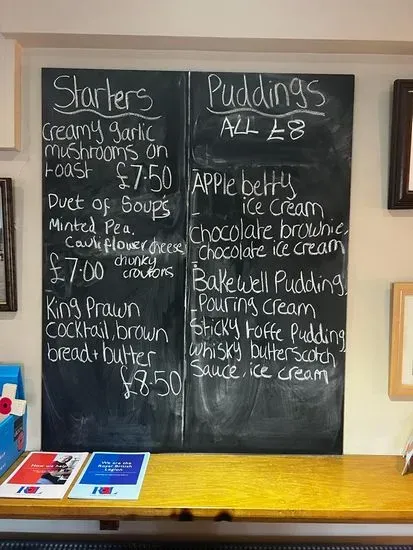 Starters
creamy garlic
mushrooms on
toast £7.50
Duet of Soups
Minted Pea,
Cauliflower cheese
chunky
£7.00 croutons
King Prawn
cocktail, brown
bread + butter
£8.50
Puddings
ALL £8
Apple betty
- ice cream
chocolate brownie,
chocolate ice cream
-
Bakewell Pudding,
- Pouring cream
Sticky toffe Pudding,
whisky butterscotch
Sauce, ice cream
We are the
Royal British
Legion